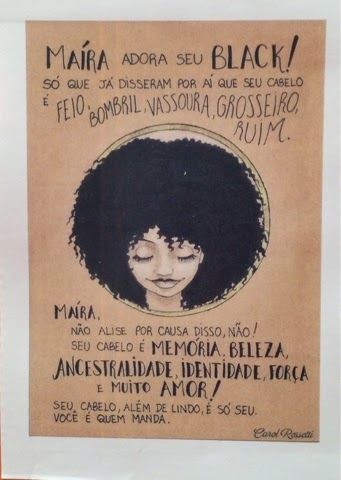 MAÍRA ADORA SEU BLACK!
SÓ QUE JÁ DISSERAM POR AÍ QUE SEU CABELO
É FEIO, BOMBRIL, VASSOURA, GROSSEIRO,
RUIM.
MAÍRA,
NÃO ALISE POR CAUSA DISSO, NÃO!
SEU CABELO É MEMÓRIA, BELEZA,
ANCESTRALIDADE, IDENTIDADE, FORÇA
E MUITO AMOR!
SEU CABELO, ALÉM DE LINDO, É SÓ SEU.
VOCÊ É QUEM MANDA.
Carol Rossetti